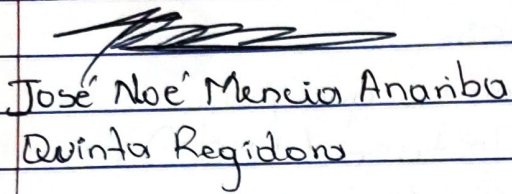 José Noé Mencia Anariba
Quinta Regidora